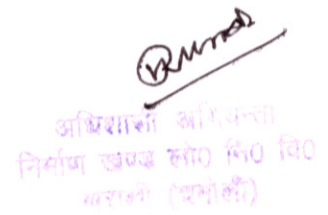 अधिशासी अभियन्ता
निर्माण खण्ड लो0 नि0 वि0
थराली (चमोली)